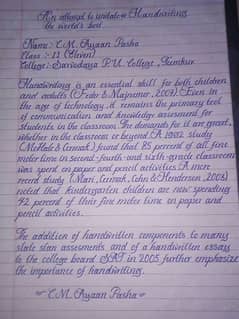 An attempt to imitate Handwriting
the world's best
Name:- C.M. Ayaan Pasha
Class :- 11 (Eleven)
College: Sarvodaya P.U. College, Tumkur
Handwriting is an essential skill for both children
and adults (Feder & Majnemer, 2007). Even in
the age of technology, it remains the primary tool
of communication and knowledge assesment for
students in the classroom. The demands for it are great,
whether in the classroom or beyond. A 1992 study
(McHale & Cermak) found that 85 percent of all fine
motor time in second-fourth-and sixth-grade classroom
was spent on paper and pencil activities. A more
recent study (Marr, Cermak, Cohn & Henderson, 2003)
noted that kindergarten children are now spending
42 percent of their fine motor time on paper and
pencil activities.
The addition of handwritten components to many
state stan assesments, and of a handwritten essay
to the college board SAT in 2005 further emphasize
the importance of handwriting.
C.M. Ayaan Pasha